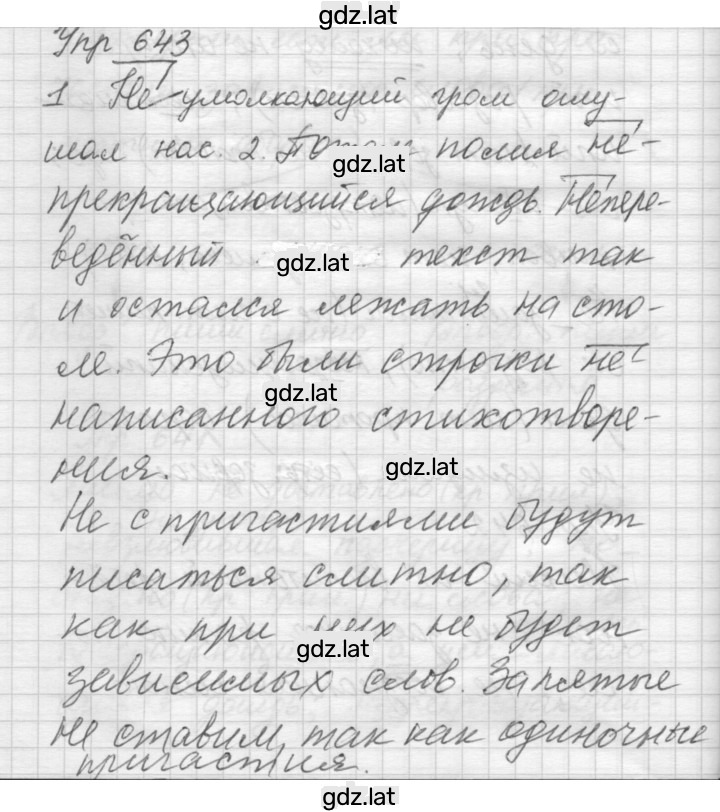 gdz.lat
Упр 643
1 Неумолкающий гром оглу-
шал нас. 2. Потом полил не-
gdz.lat
прекращающийся дождь. Непере-
ведённый текст так
gdz.lat
и остался лежать на сто-
ле. Это были строчки не-
gdz.lat
написанного стихотворе-
ния.
gdz.lat
Не с причастиями будут
писаться слитно, так
как при них не будет
gdz.lat
зависимых слов. Запятые
не ставим, так как одиночные
причастия.
gdz.lat